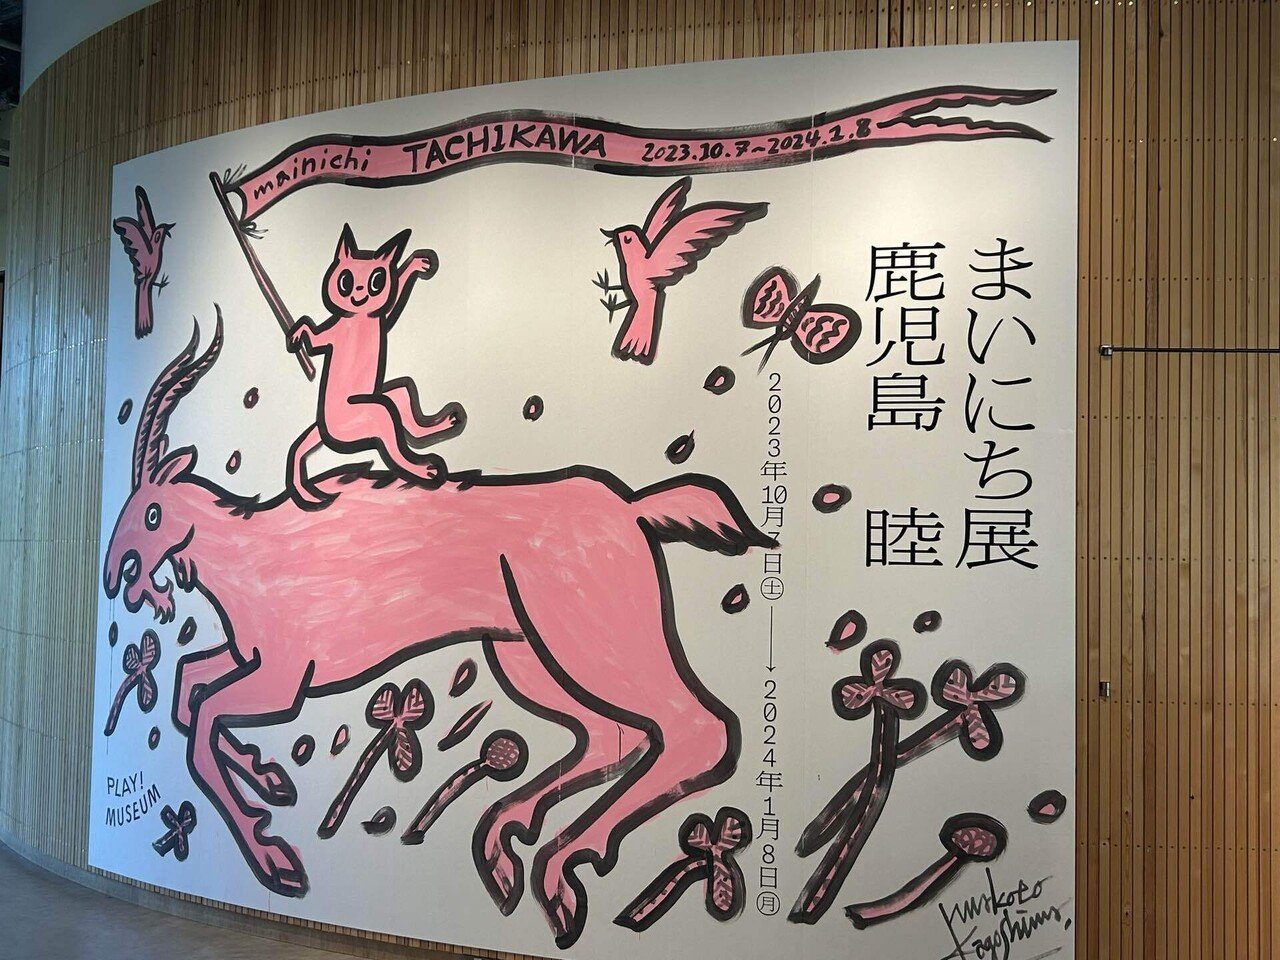 mainichi TACHIKAWA 2023.10.7~2024.1.8
まいにち展
鹿児島 睦
2023年10月7日㊏→2024年1月8日㊊
PLAY!
MUSEUM
Makoto
Kagoshima.